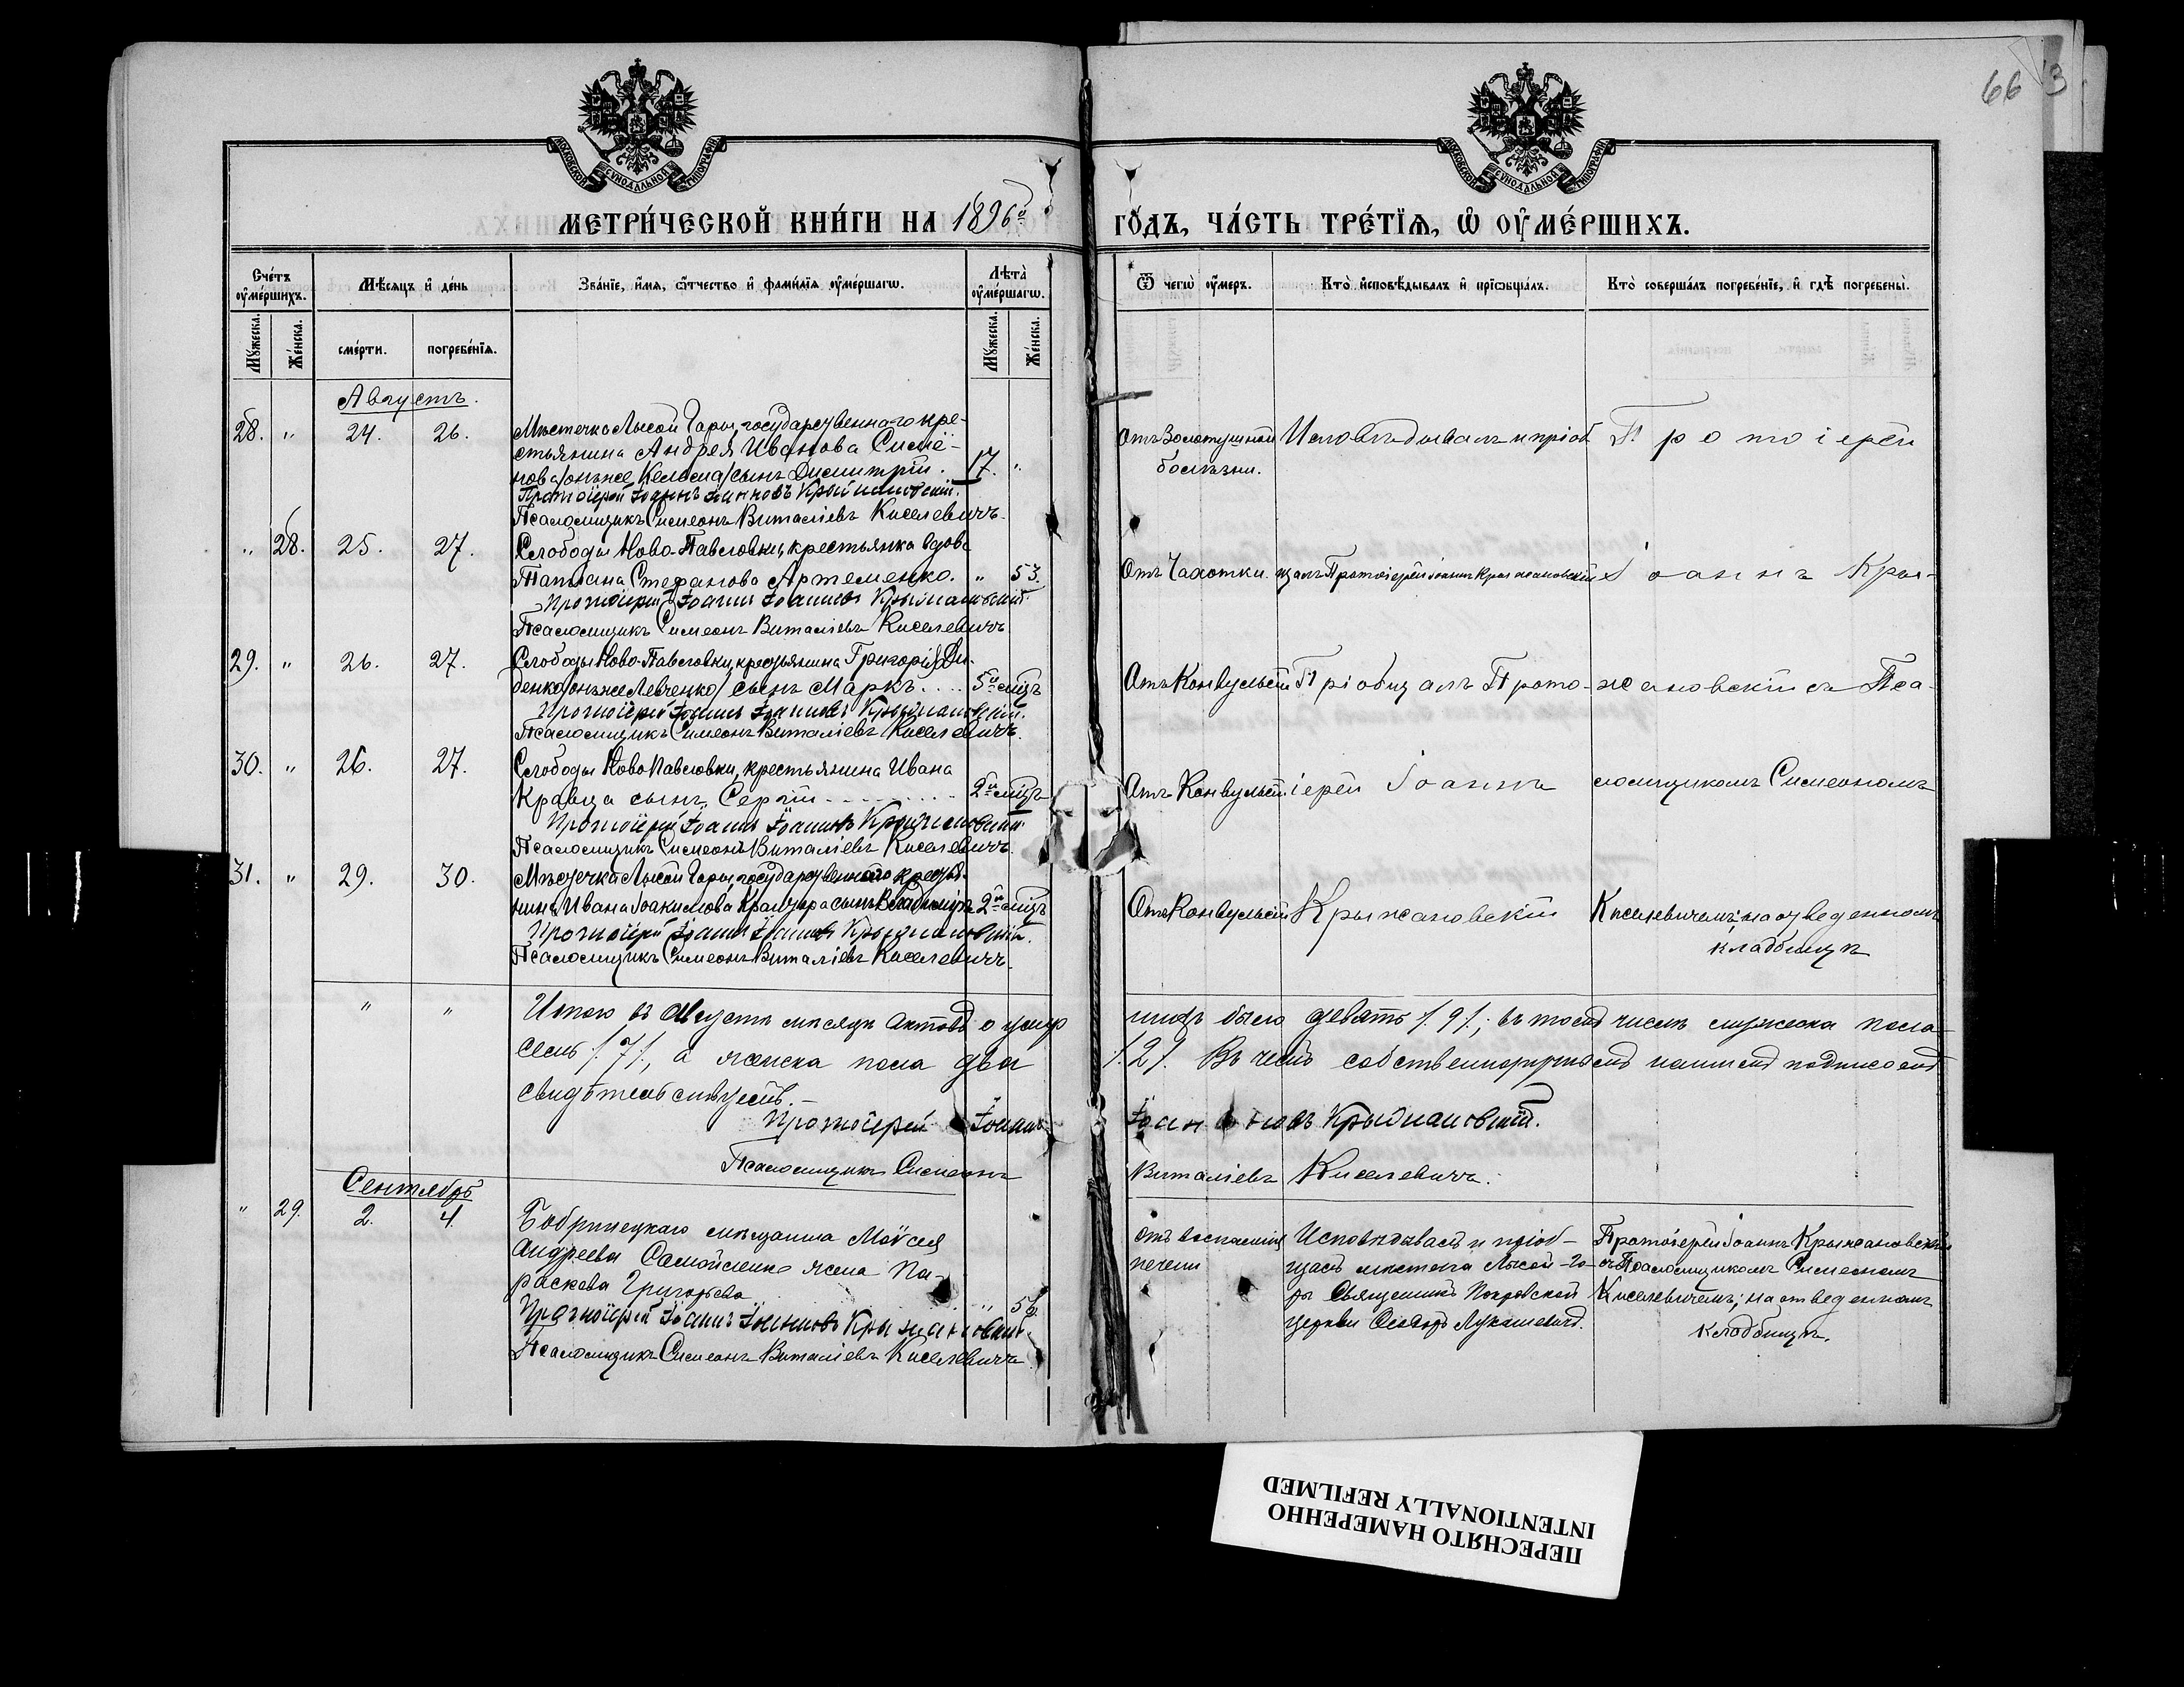 66
3
МОСКОВСКОЙ СѴНОДАЛЬНОЙ ТИПОГРАФІИ
МОСКОВСКОЙ СѴНОДАЛЬНОЙ ТИПОГРАФІИ
МЕТРИ́ЧЕСКОЙ КНИ́ГИ НА 1896й
ГО́ДЪ, ЧА́СТЬ ТРЕ́ТЇѦ, Ѡ҆ ОУ҆МЕ́РШИХЪ.
Сче́тъ оу҆ме́ршихъ.
Мѣ́сяцъ и҆ де́нь
Зва́нїе, и҆́мя, ѻ҆́тчество и҆ фами́лїя оу҆ме́ршагѡ.
Лѣ́та оу҆ме́ршагѡ.
Ѿ чегѡ̀ оу҆́меръ.
Кто̀ и҆сповѣ́дывалъ и҆ прїѡбща́лъ.
Кто̀ соверша́лъ погребе́нїе, и҆ гдѣ̀ погребены̀.
Мꙋ́жеска.
Же́нска.
сме́рти.
погребе́нїя.
Мꙋ́жеска.
Же́нска.
Августъ.
28. " 24. 26.
Мѣстечка Лысой Горы, государственнаго кре-
стьянина Андрея Иванова Симо-
нова/онъ же Кельма/сынъ Димитрій. 17. "
Протоіерей Іоаннъ Іоанновъ Крыжановскій.
Псаломщикъ Симеонъ Виталіевъ Киселевичъ.
Отъ Золотушной болѣзни.
Исповѣдывалъ и пріоб
Протоіерей
" 28. 25. 27.
Слободы Ново-Павловки, крестьянка вдова
Татіана Стефанова Артеменко. " 53.
Протоіерей Іоаннъ Іоанновъ Крыжановскій.
Псаломщикъ Симеонъ Виталіевъ Киселевичъ
Отъ Чахотки.
щалъ Протоіерей Іоаннъ Крыжановскій
Іоаннъ Кры-
29. " 26. 27.
Слободы Ново-Павловки, крестьянина Григорія Ди-
денко/онъ же Левченко/ сынъ Маркъ.... 5ти мѣц
Протоіерей Іоаннъ Іоанновъ Крыжановскій.
Псаломщикъ Симеонъ Виталіевъ Киселевичъ.
Отъ Конвульсій
Пріобщалъ Прото-
жановскій съ Пса-
30. " 26. 27.
Слободы Ново Павловки, крестьянина Ивана
Кравца сынъ, Сергій - - - - 2хъ мѣц
Протоіерей Іоаннъ Іоанновъ Крыжановскій
Псаломщикъ Симеонъ Виталіевъ Киселевичъ.
Отъ Конвульсій
іерей Іоаннъ
ломщикомъ Симеономъ
31. " 29. 30.
Мѣстечка Лысой Горы, государственнаго крестья-
нина Ивана Іоакимова сынъ Владиміръ 2хъ мѣц
Протоіерей Іоаннъ Іоанновъ Крыжановскій.
Псаломщикъ Симеонъ Виталіевъ Киселевичъ.
Отъ Конвульсій
Крыжановскій
Киселевичемъ; на отведенномъ
кладбищѣ
" "
Итого въ Августѣ мѣсяцѣ актовъ о умер
шихъ было девять /.9/.; въ томъ числѣ мужеска пола
семь /.7/., а женска пола два
/.2/. Въ чемъ собственноручнымъ нашимъ подписомъ
свидѣтельствуемъ.-
Протоіерей Іоаннъ
Іоанновъ Крыжановскій.
Псаломщикъ Симеонъ
Виталіевъ Киселевичъ.
Сентябрь
" 29. 2. 4.
Бобринецкаго мѣщанина Моѵсея
Андреева Самойленко жена Па-
раскева Григорьева " 56
Протоіерей Іоаннъ Іоанновъ Крыжановскій.
Псаломщикъ Симеонъ Виталіевъ Киселевичъ
Отъ воспаленія
печени
Исповѣдывалъ и пріоб-
щалъ мѣстечка Лысой-Го-
ры Священникъ Покровской
церкви Ѳеодоръ Лукашевичъ.
Протоіерей Іоаннъ Крыжановскій
съ Псаломщикомъ Симеономъ
Киселевичемъ; на отведенномъ
кладбищѣ.
ПЕРЕСНЯТО НАМЕРЕННО
INTENTIONALLY REFILMED